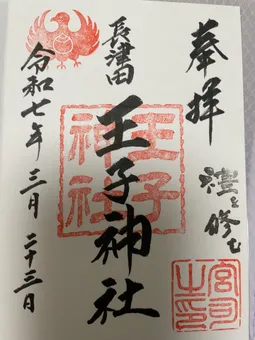 奉拝
禮を修む
長津田
王子神社
令和七年三月二十三日
王子
神社
宮司
之印